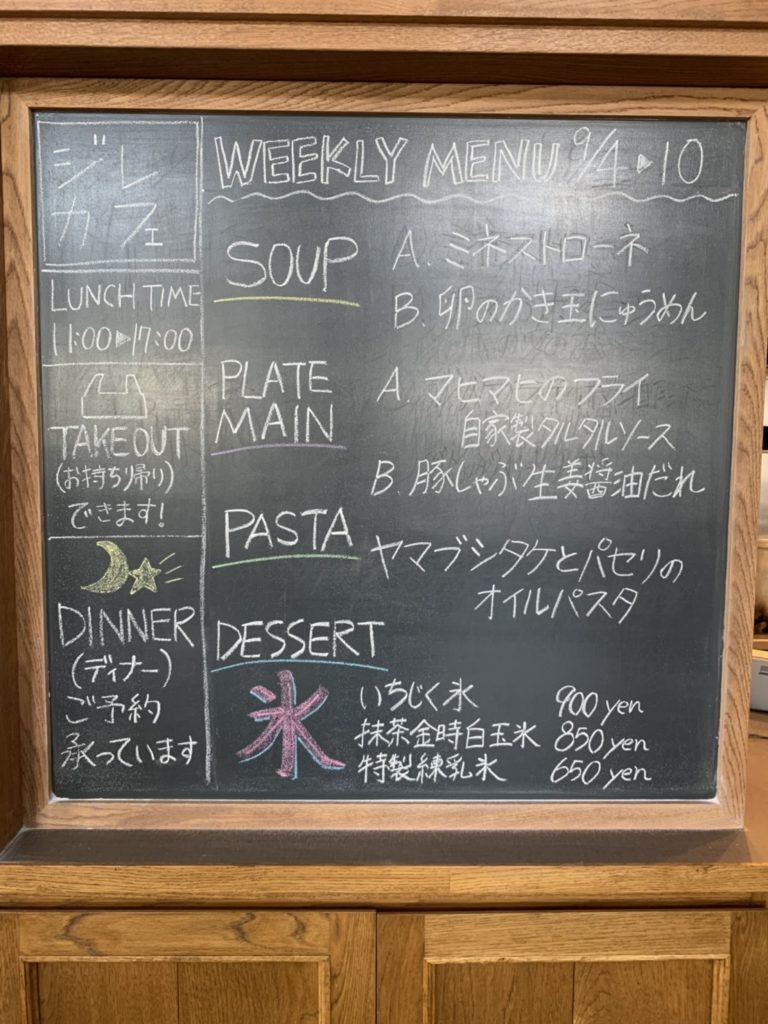 ジレ
カフェ
LUNCH TIME
11:00▶17:00
TAKE OUT
(お持ち帰り)
できます!
DINNER
(ディナー)
ご予約
承っています
WEEKLY MENU 9/4▶10
SOUP
A. ミネストローネ
B. 卵のかき玉にゅうめん
PLATE
MAIN
A. マヒマヒのフライ
自家製タルタルソース
B. 豚しゃぶ生姜醤油だれ
PASTA
ヤマブシタケとパセリの
オイルパスタ
DESSERT
氷
いちじく氷 900 yen
抹茶金時白玉氷 850 yen
特製練乳氷 650 yen